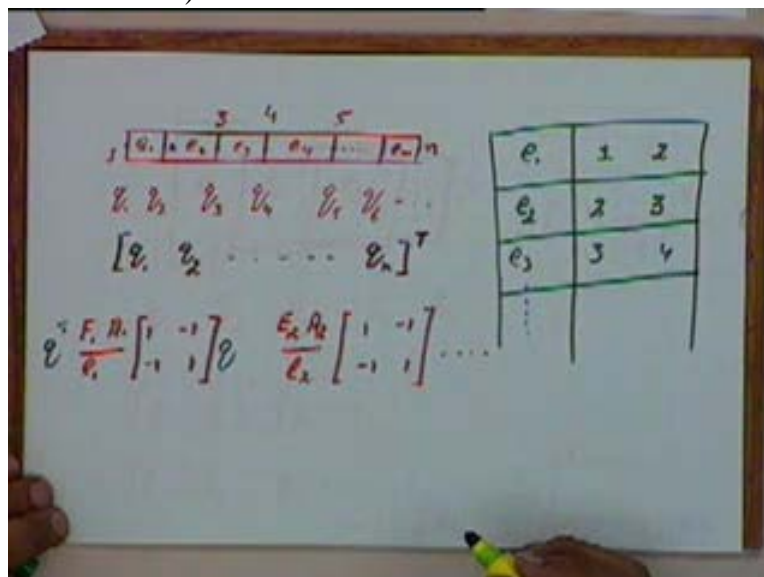 3 4 5
1 e₁ 2 e₂ e₃ e₄ ..... eₙ n
q₁ q₂ q₃ q₄ q₅ q₆ ...
[q₁ q₂ ..... qₙ]ᵀ
qᵀ E₁ A₁ / ℓ₁ [1 -1 -1 1] q E₂ A₂ / ℓ₂ [1 -1 -1 1] ....
e₁ 1 2
e₂ 2 3
e₃ 3 4